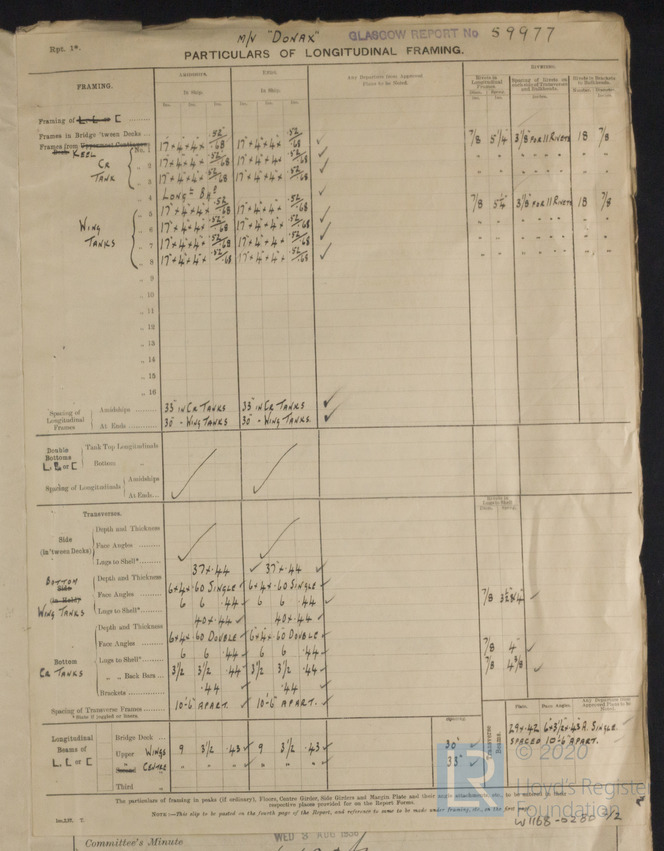 Rpt. 1*.
M/V "DONAX" GLASGOW REPORT No 59977
PARTICULARS OF LONGITUDINAL FRAMING.
FRAMING.
AMIDSHIPS.
ENDS.
In Ship.
In Ship.
Any Departure from Approved Plans to be Noted.
RIVETING.
Rivets in Longitudinal Frames
Spacing of Rivets on each side of Transverses and Bulkheads.
Rivets in Brackets to Bulkheads.
Framing of L, L or [
Frames in Bridge 'tween Decks
Frames from
KEEL No. 1 17" × 4" × 4" × .52/.68 17" × 4" × 4" × .52/.68 ✓ 7/8 5 1/4 3 1/8" FOR 11 RIVETS 18 7/8
CR „ 2 17" × 4" × 4" × .52/.68 17" × 4" × 4" × .52/.68 ✓ " " " " "
TANK „ 3 17" × 4" × 4" × .52/.68 17" × 4" × 4" × .52/.68 ✓ " " " " "
„ 4 LONGL BHD ✓
„ 5 17" × 4" × 4" × .52/.68 17" × 4" × 4" × .52/.68 ✓ 7/8 5 1/4" 3 1/8" FOR 11 RIVETS 18 7/8
WING „ 6 17" × 4" × 4" × .52/.68 17" × 4" × 4" × .52/.68 ✓ " " " " "
TANKS „ 7 17" × 4" × 4" × .52/.68 17" × 4" × 4" × .52/.68 ✓ " " " " "
„ 8 17" × 4" × 4" × .52/.68 17" × 4" × 4" × .52/.68 ✓ " " " " "
„ 9
„ 10
„ 11
„ 12
„ 13
„ 14
„ 15
„ 16
Spacing of Longitudinal Frames
Amidships 33" IN CR TANKS 33" IN CR TANKS ✓
At Ends 30" - WING TANKS 30" - WING TANKS. ✓
Double Bottoms L, L or [
Tank Top Longitudinals
Bottom „
Spacing of Longitudinals Amidships
At Ends
Transverses.
Rivets in Lugs to Shell
Side (in 'tween Decks)
Depth and Thickness
Face Angles
Lugs to Shell*
BOTTOM Side (in Hold) WING TANKS
Depth and Thickness 37 × .44 ✓ 37" × .44 ✓
Face Angles 6 × 4 × .60 SINGLE ✓ 6 × 4 × .60 SINGLE ✓
Lugs to Shell* 6 6 .44 ✓ 6 6 .44 ✓ 7/8
Bottom CR TANKS
Depth and Thickness 40 × .44 ✓ 40 × .44 ✓
Face Angles 6 × 4 × .60 DOUBLE ✓ 6 × 4 × .60 DOUBLE ✓
Lugs to Shell* 6 6 .44 ✓ 6 6 .44 ✓ 7/8 4" ✓
„ „ Back Bars 3 1/2 3 1/2 .44 ✓ 3 1/2 3 1/2 .44 ✓ 7/8 4 3/8 ✓
Brackets .44 ✓ .44 ✓
Spacing of Transverse Frames 10'-6" APART. ✓ 10'-6" APART. ✓
*State if joggled or liners.
Longitudinal Beams of L, L or [
Bridge Deck
Spacing
Upper WINGS 9 3 1/2 .43 ✓ 9 3 1/2 .43 ✓ 30" ✓
CENTRE " " " ✓ " " " ✓ 33" ✓
Third „
Transverse Beams.
Plate. Face Angles. Any Departure from Approved Plans to be Noted.
29 × .42 6 × 3 1/2 × .43 A. SINGLE.
SPACED 10'-6" APART.
The particulars of framing in peaks (if ordinary), Floors, Centre Girder, Side Girders and Margin Plate and their angle attachments, etc., to be
respective places provided for on the Report Forms.
NOTE:—This slip to be pasted on the fourth page of the Report, and reference to same to be made under Framing, etc., on the first
© 2020
Lloyd's Register
Foundation
W1168-0280 2/2
Committee's Minute
WED 3 AUG 1938